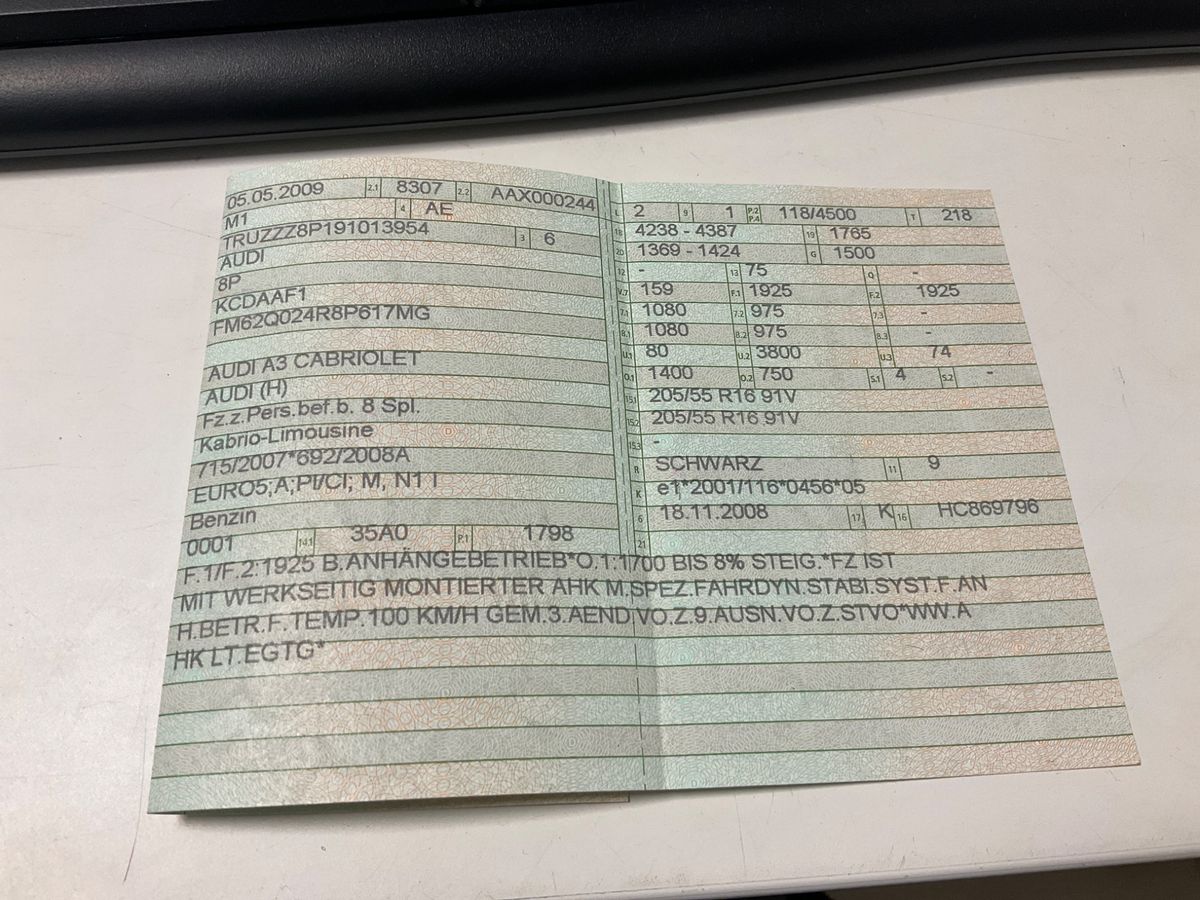 05.05.2009 2.1 8307 2.2 AAX000244
M1 4 AE
TRUZZZ8P191013954 3 6
AUDI
8P
KCDAAF1
FM62Q024R8P617MG
AUDI A3 CABRIOLET
AUDI (H)
Fz.z.Pers.bef.b. 8 Spl.
Kabrio-Limousine
715/2007*692/2008A
EURO5;A;PI/CI; M, N1 I
Benzin
0001 14.1 35A0 P.1 1798
L 2 9 1 P.2 P.4 118/4500 T 218
18 4238 - 4387 19 1765
20 1369 - 1424 G 1500
12 - 13 75 Q -
V.7 159 F.1 1925 F.2 1925
7.1 1080 7.2 975 7.3 -
8.1 1080 8.2 975 8.3 -
U.1 80 U.2 3800 U.3 74
O.1 1400 O.2 750 S.1 4 S.2 -
15.1 205/55 R16 91V
15.2 205/55 R16 91V
15.3 -
R SCHWARZ 11 9
K e1*2001/116*0456*05
6 18.11.2008 17 K 16 HC869796
21
F.1/F.2:1925 B.ANHÄNGEBETRIEB*O.1:1700 BIS 8% STEIG.*FZ IST
MIT WERKSEITIG MONTIERTER AHK M.SPEZ.FAHRDYN.STABI.SYST.F.AN
H.BETR.F.TEMP.100 KM/H GEM.3.AEND.VO.Z.9.AUSN.VO.Z.STVO*WW.A
HK LT.EGTG*